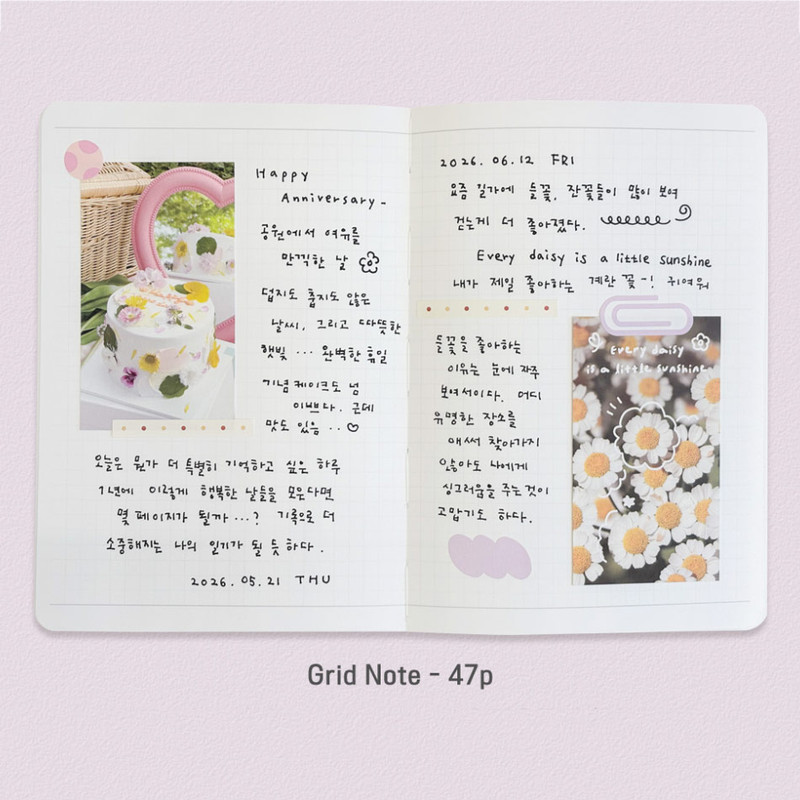 Happy
Anniversary-
공원에서 여유를
만끽한 날
덥지도 춥지도 않은
날씨, 그리고 따뜻한
햇빛 ... 완벽한 휴일
기념케이크도 넘
이쁘다. 근데
맛도 있음 ..
오늘은 뭔가 더 특별히 기억하고 싶은 하루
1년에 이렇게 행복한 날들을 모운다면
몇 페이지가 될까 ...? 기록으로 더
소중해지는 나의 일기가 될 듯 하다.
2026.05.21 THU
2026.06.12 FRI
요즘 길가에 들꽃, 잔꽃들이 많이 보여
걷는게 더 좋아졌다.
Every daisy is a little sunshine
내가 제일 좋아하는 계란 꽃-! 귀여워
들꽃을 좋아하는
이유는 눈에 자주
보여서이다. 어디
유명한 장소를
애써 찾아가지
않아도 나에게
싱그러움을 주는것이
고맙기도 하다.
Every daisy
is a little sunshine
Grid Note - 47p